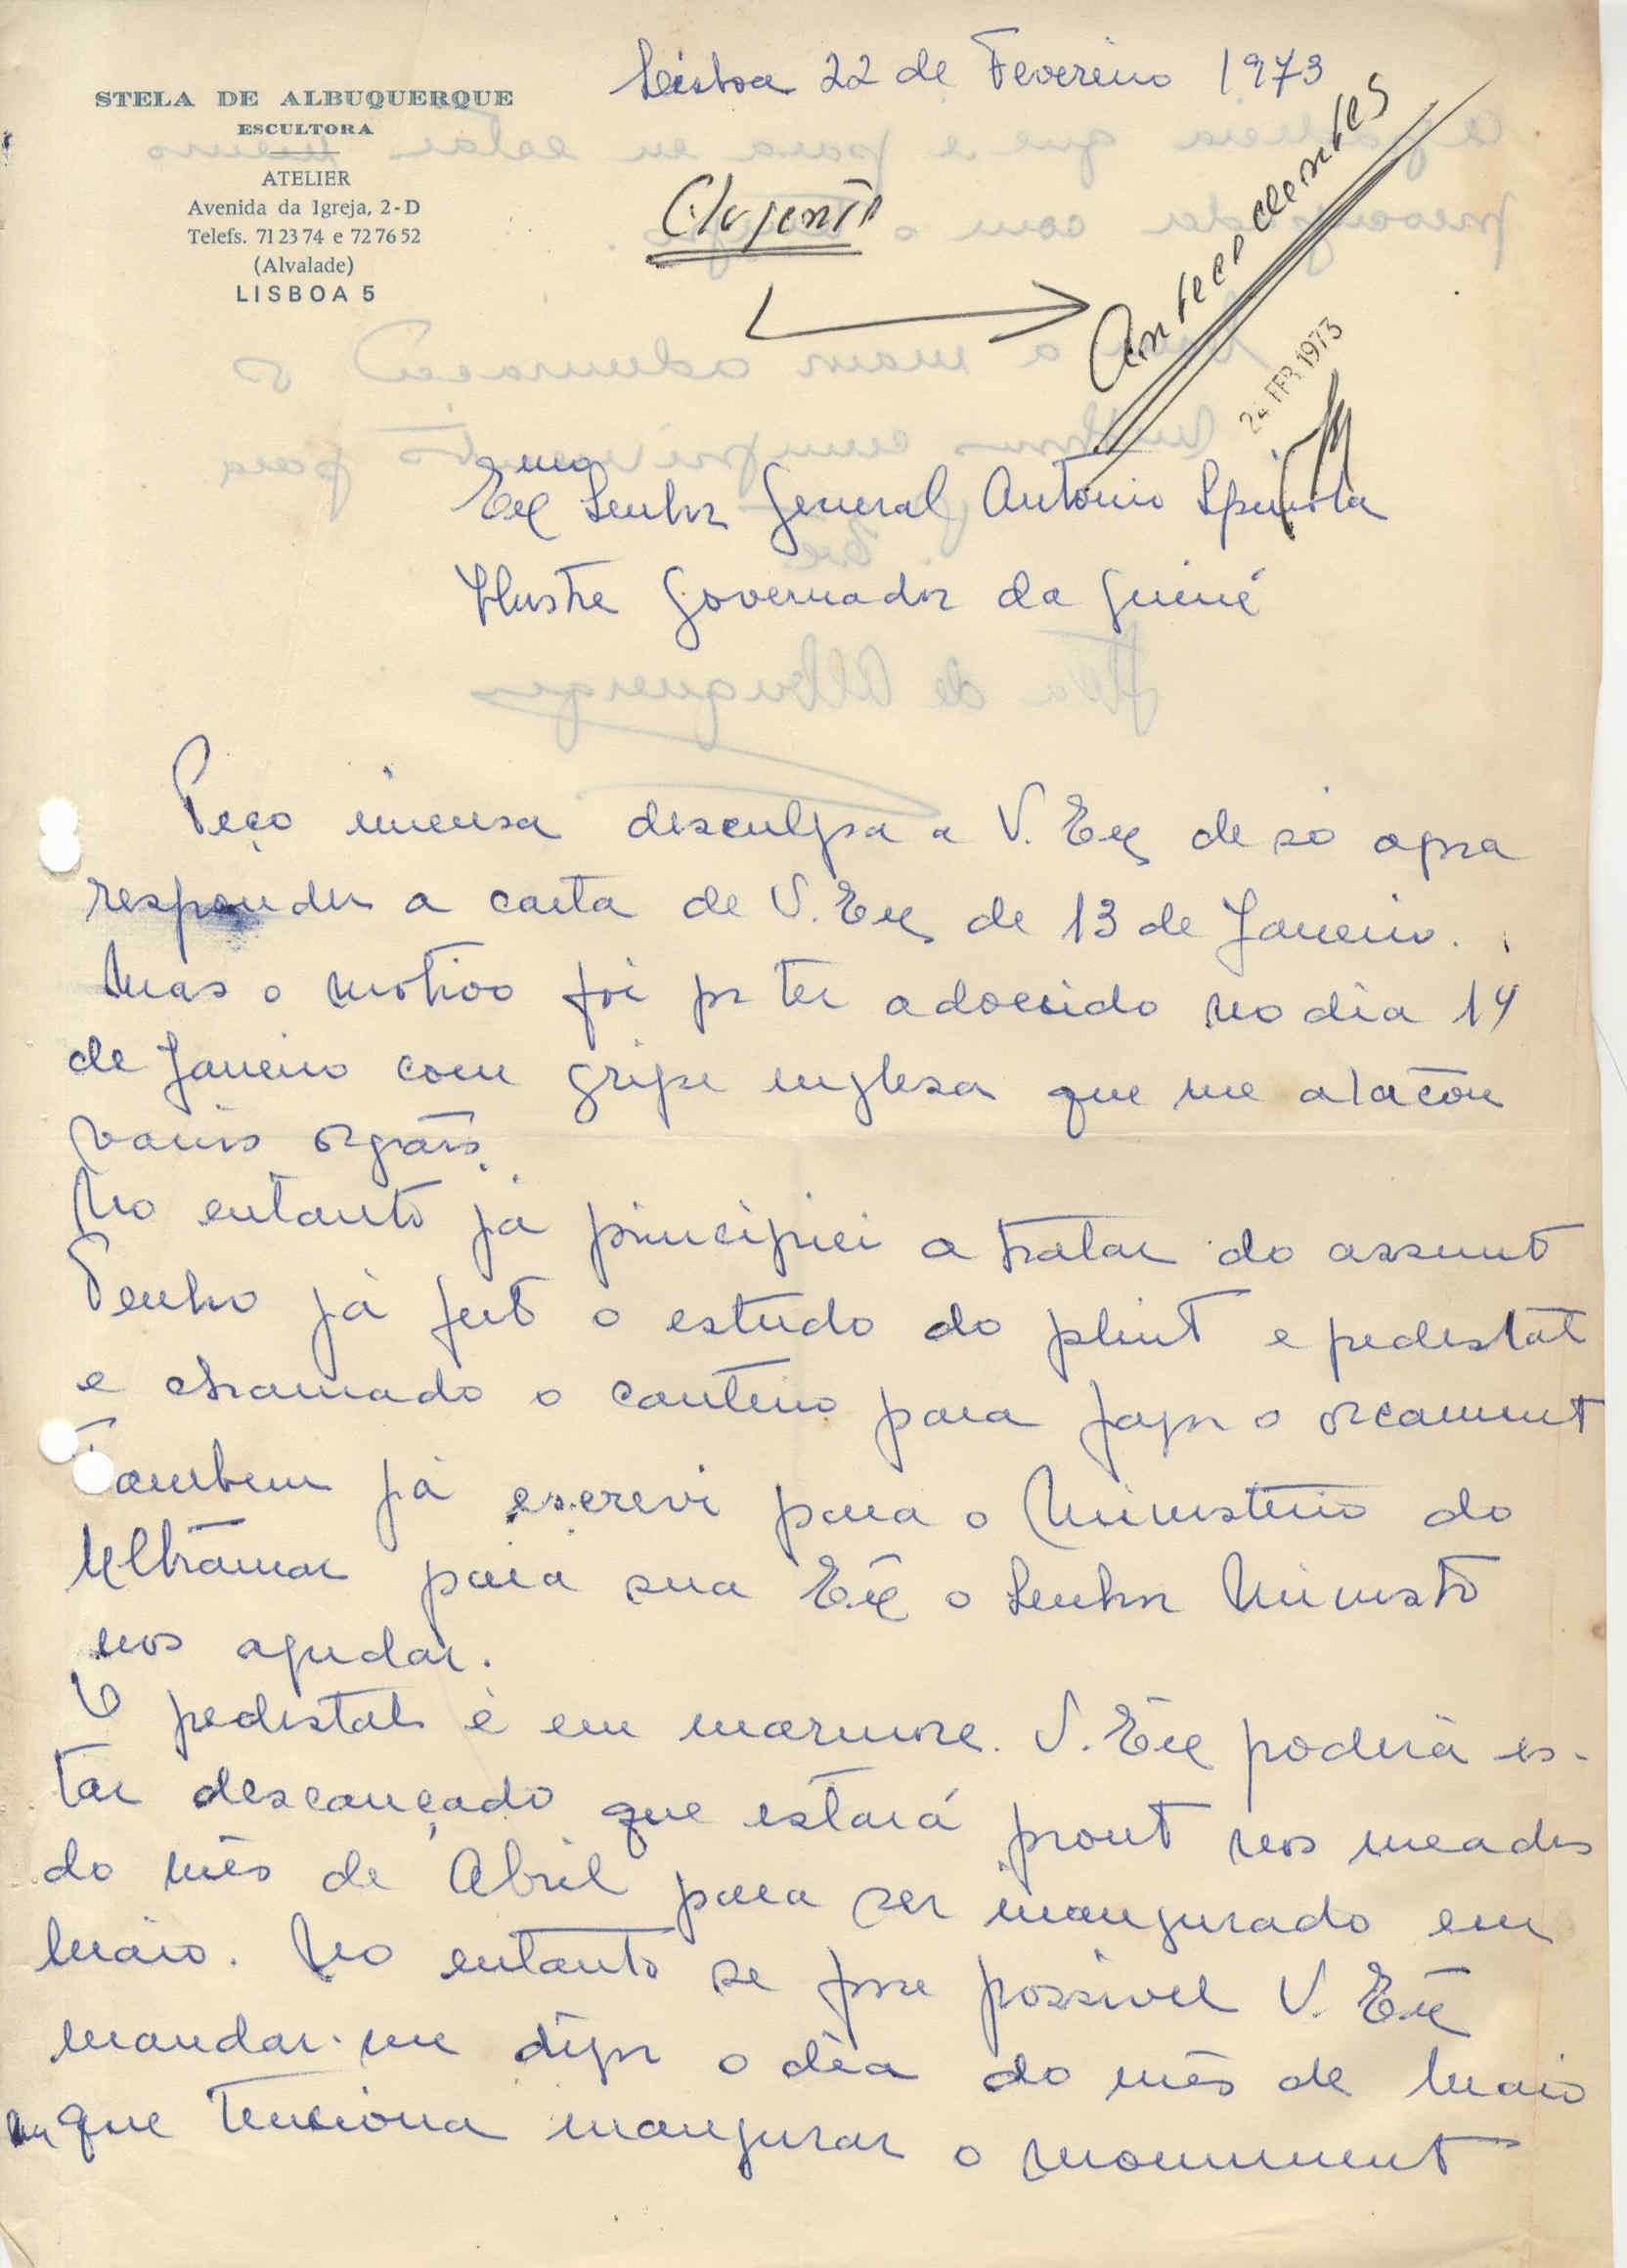 STELA DE ALBUQUERQUE
ESCULTORA
ATELIER
Avenida da Igreja, 2-D
Telefs. 71 23 74 e 72 76 52
(Alvalade)
LISBOA 5
Lisboa 22 de Fevereiro 1973
Urgente
Antecedentes
24 FEB. 1973
Exmo Senhor General António Spinola
Ilustre Governador da Guiné
Peço imensa desculpa a V. Ex de só agora
responder a carta de V. Ex de 13 de Janeiro.
Mas o motivo foi por ter adoecido no dia 14
de Janeiro com gripe inglesa que me atacou
varios orgãos.
No entanto já principiei a tratar do assunto
Tenho já feito o estudo do plinto e pedestal
e chamado o canteiro para fazer o orcamento
Tambem já escrevi para o Ministério do
Ultramar para sua Ex o Senhor Ministro
nos ajudar.
O pedestal é em marmore. V. Ex poderá es-
tar descançado que estará pronto nos meados
do mês de Abril para ser inaugurado em
Maio. No entanto se fosse possivel V. Ex
mandar-me dizer o dia do mês de Maio
em que tenciona inaugurar o monumento